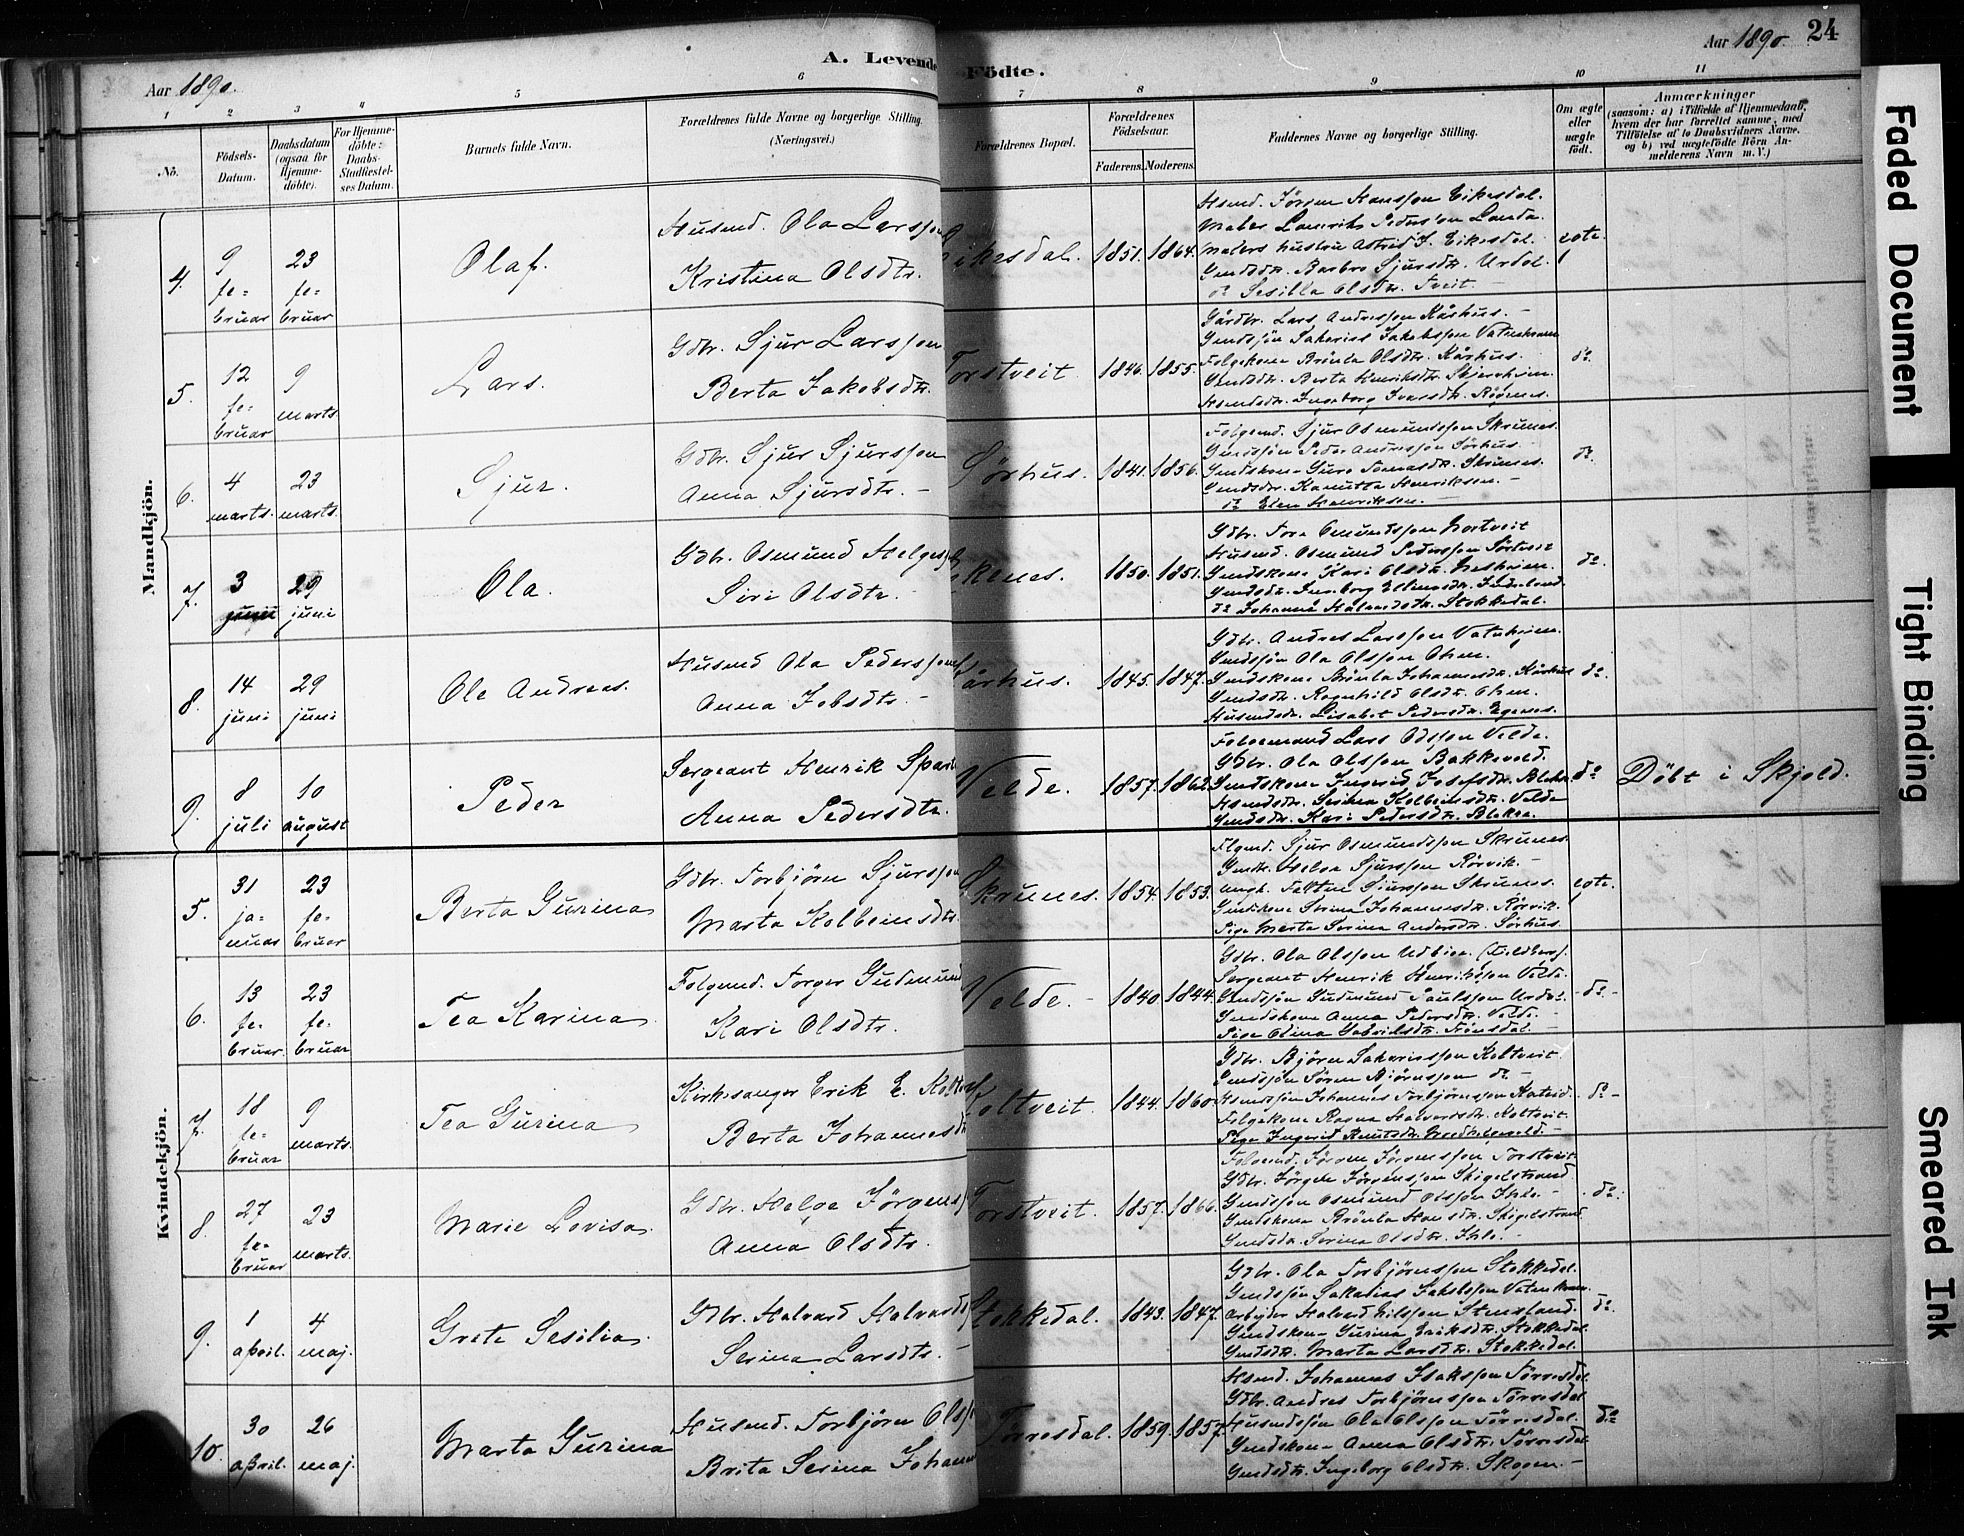 Aar 1890.
A. Levende Födte.
Aar 1890. 24
1 2 3 4 5 6 7 8 9 10 11
No.
Födsels-Datum.
Daabsdatum (ogsaa for Hjemme-döbte).
For Hjemme-döbte: Daabs-Stadfæstel-ses Datum.
Barnets fulde Navn.
Forældrenes fulde Navne og borgerlige Stilling. (Næringsvei.)
Forældrenes Bopæl.
Forældrenes Födselsaar.
Faderens. Moderens.
Faddernes Navne og borgerlige Stilling.
Om ægte eller uægte födt.
Anmærkninger
(saasom: a) i Tilfælde af Hjemmedaab, hvem der har forrettet samme, med Tilföielse af to Daabsvidners Navne. og b) ved uægtefödte Börn An-melderens Navn m. V.)
Mandkjön.
4. 9 februar 23 februar Olaf. Husmd. Ola Larsson Kristina Olsdtr. Eikesdal. 1851. 1864. egte.
Husmd. Jörgen Hansson Eikesdal.
Maler Lauritz Pederson Landa.
Malers hustru Astrid J. Eikesdal.
Gmdsdtr. Barbro Sjursdtr. Urdal.
do Sesilla Olsdtr. Tveit
5. 12 februar 9 marts. Lars. Gdbr. Sjur Larsson Berta Jakobsdtr. Torstveit 1846. 1855. do.
Gårdbr. Lars Andresson Kårhus.
Gmdssön Sakarias Jakobsson
Folgekone Brönla Olsdtr. Kårhus.
Gmdsdtr. Berta Henriksdtr.
Hsmdsdtr. Ingeborg Ivarsdtr.
6. 4 marts. 23 marts. Sjur. Gdbr. Sjur Sjursson Anna Sjursdtr. Sörhus. 1841. 1856. do.
Folgemd. Sjur Osmundsson Skrunes.
Gmdssön Peder Andresson Sörhus.
Gmdskone Guro Skrunes.
Gmdsdtr. Kanutta Henriksen.
do Elen Henriksen.
7. 3 juni 29 juni Ola. Gdbr. Osmund Helges Siri Olsdtr. 1850. 1851. do.
Gdbr. Tore
Husmd. Osmund Pedersson
Gmdskone Kari Olsdtr.
Gmdsdtr. Ingeborg
do Johanna Stokkedal.
8. 14 juni 29 juni Ole Andreas. Husmd Ola Pedersson Anna Jobsdtr. Kårhus. 1845. 1847. do.
Gdbr. Andres Larsson
Gmdssön Ola Olsson Ohm.
Gmdskone Brönla Johannesdtr. Kårhus
Gmdsdtr. Ragnhild Olsdtr. Ohm.
Husmdsdtr. Lisabet Pedersdtr.
9. 8 juli 10 august Peder Sergeant Henrik Anna Pedersdtr. Velde. 1857. 1862. do Döbt i Skjold.
Folgemand Lars Odsson Velde.
Gdbr. Ola Olsson Bakkevold.
Gmdskone Ingerid Josefsdtr.
Hsmdsdtr. Serina Kolbeinsdtr. Velde
Gmdsdtr. Kari Pedersdtr.
Kvindekjön.
5. 31 januar 23 februar Berta Gurina Gdbr. Torbjörn Sjursson Marta Kolbeinsdtr. Skrunes. 1854. 1853. egte.
Flgmd. Sjur Osmundsson Skrunes.
Gmdbr. Helge Sjursson Rörvik.
ungk. Sjursson Skrunes.
Gmdskone Serina Johannesdtr. Rörvik.
Pige Marta Serina Andersdtr. Sörhus.
6. 13 februar. 23 februar Tea Karina Folgemd. Torger Gudmund Kari Olsdtr. Velde. 1840. 1844. do
Gdbr. Ola Olsson
Sergeant Henrik Henriksson Velde.
Gmdssön Gudmund Paulsson
Gmdskone Anna Pedersdtr. Velde.
Pige Olina Gabrielsdtr.
7. 18 februar 9 marts. Tea Gurina Kirkesanger Erik E. Koltveit Berta Johannesdtr Koltveit. 1844. 1860. do
Gdbr. Björn Sakariasson Koltveit.
Gmdssön Sören Björnsson do
Hsmdssön Johannes Torbjörnsson
Folgekone Ragna Halvardsdtr. Koltveit.
Pige Ingerid Knutsdtr.
8. 27 februar 23 marts. Marie Lovisa Gdbr. Helge Jörgens Anna Olsdtr. Torstveit. 1857. 1866. do.
Folgemd. Jörgen Jörgensson Torstveit.
Gdbr. Jörgen Jörgensson
Gmdssön Osmund Olsson Ihle.
Gmdskone Brönla Hansdtr.
Gmdsdtr. Serina Olsdtr. Ihle.
9. 1 april. 4 maj. Grete Sesilia. Gdbr. Halvard Halvards Serina Larsdtr. Stokkedal. 1843. 1847. do.
Gdbr. Ola Torbjörnsson Stokkedal.
Gmdssön Sakarias Jakobsson
Arbejder Halvard Nilsson
Gmdskone Gurina Eriksdtr. Stokkedal.
Gmdsdtr. Marta Larsdtr. Stokkedal.
10. 30 april. 26 maj. Marta Gurina Husmd. Torbjörn Olss Brita Serina Johann Törresdal. 1859. 1857. do
Hsmd. Johannes Isaksson Törresdal.
Gdbr. Andres Torbjörnsson Törresdal
Husmdssön Ola Olsson Törresdal.
Gmdskone Anna Olsdtr. Törresdal
Gmdsdtr. Ingeborg Olsdtr. Skogen.
Faded Document
Tight Binding
Smeared Ink